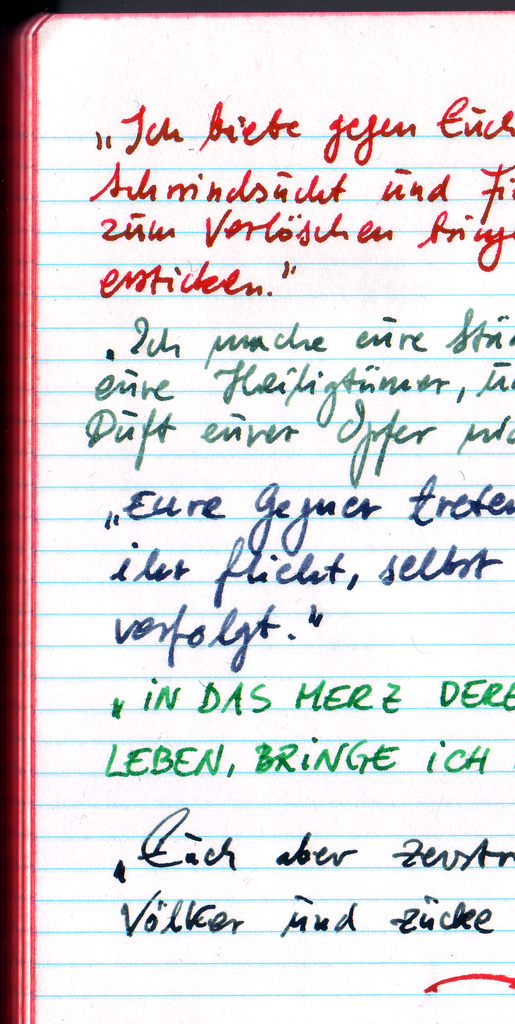 „Ich biete gegen Euch
Schwindsucht und Fi
zum Verlöschen bringe
ersticken."
„Ich mache eure Stä
eure Heiligtümer, u
Duft eurer Opfer nic
„Eure Gegner treten
ihr flieht, selbst
verfolgt."
„IN DAS HERZ DERE
LEBEN, BRINGE ICH
„Euch aber zerstr
Völker und zücke